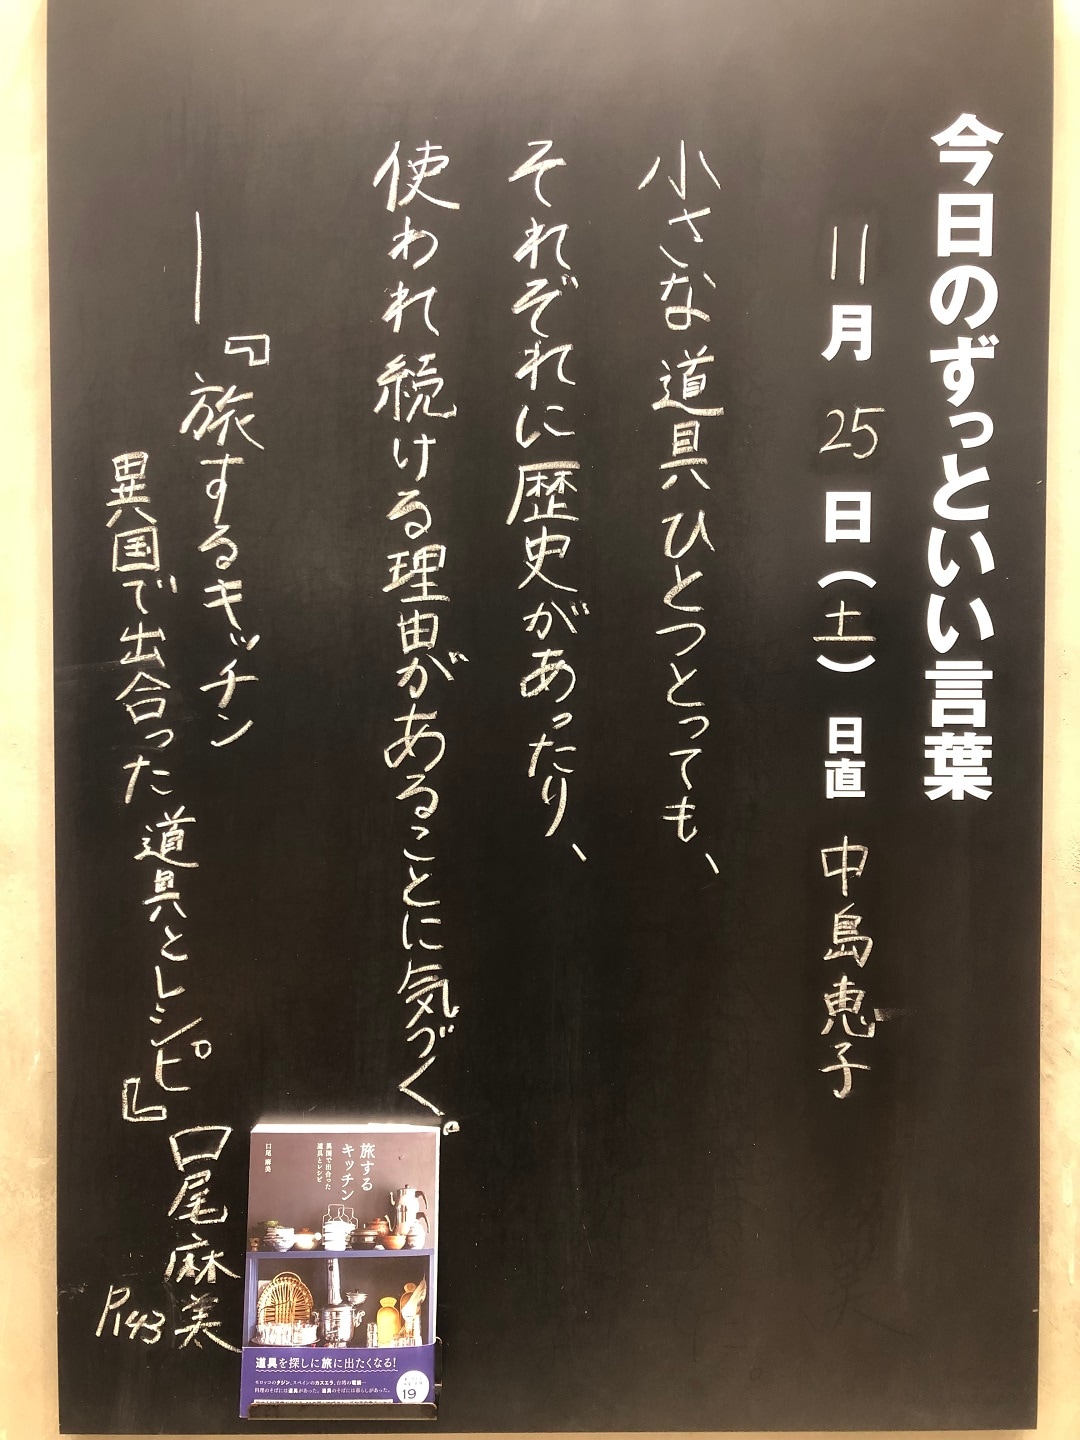 今日のずっといい言葉
11月25日(土) 日直 中島恵子
小さな道具ひとつとっても、
それぞれに歴史があったり、
使われ続ける理由があることに気づく。
―『旅するキッチン
異国で出合った道具とレシピ』口尾麻美
P143
旅する
キッチン
異国で出合った
道具とレシピ
口尾 麻美
道具を探しに旅に出たくなる!
モロッコのタジン、スペインのカスエラ、台湾の電鍋…
料理のそばには道具があった。道具のそばには暮らしがあった。
19